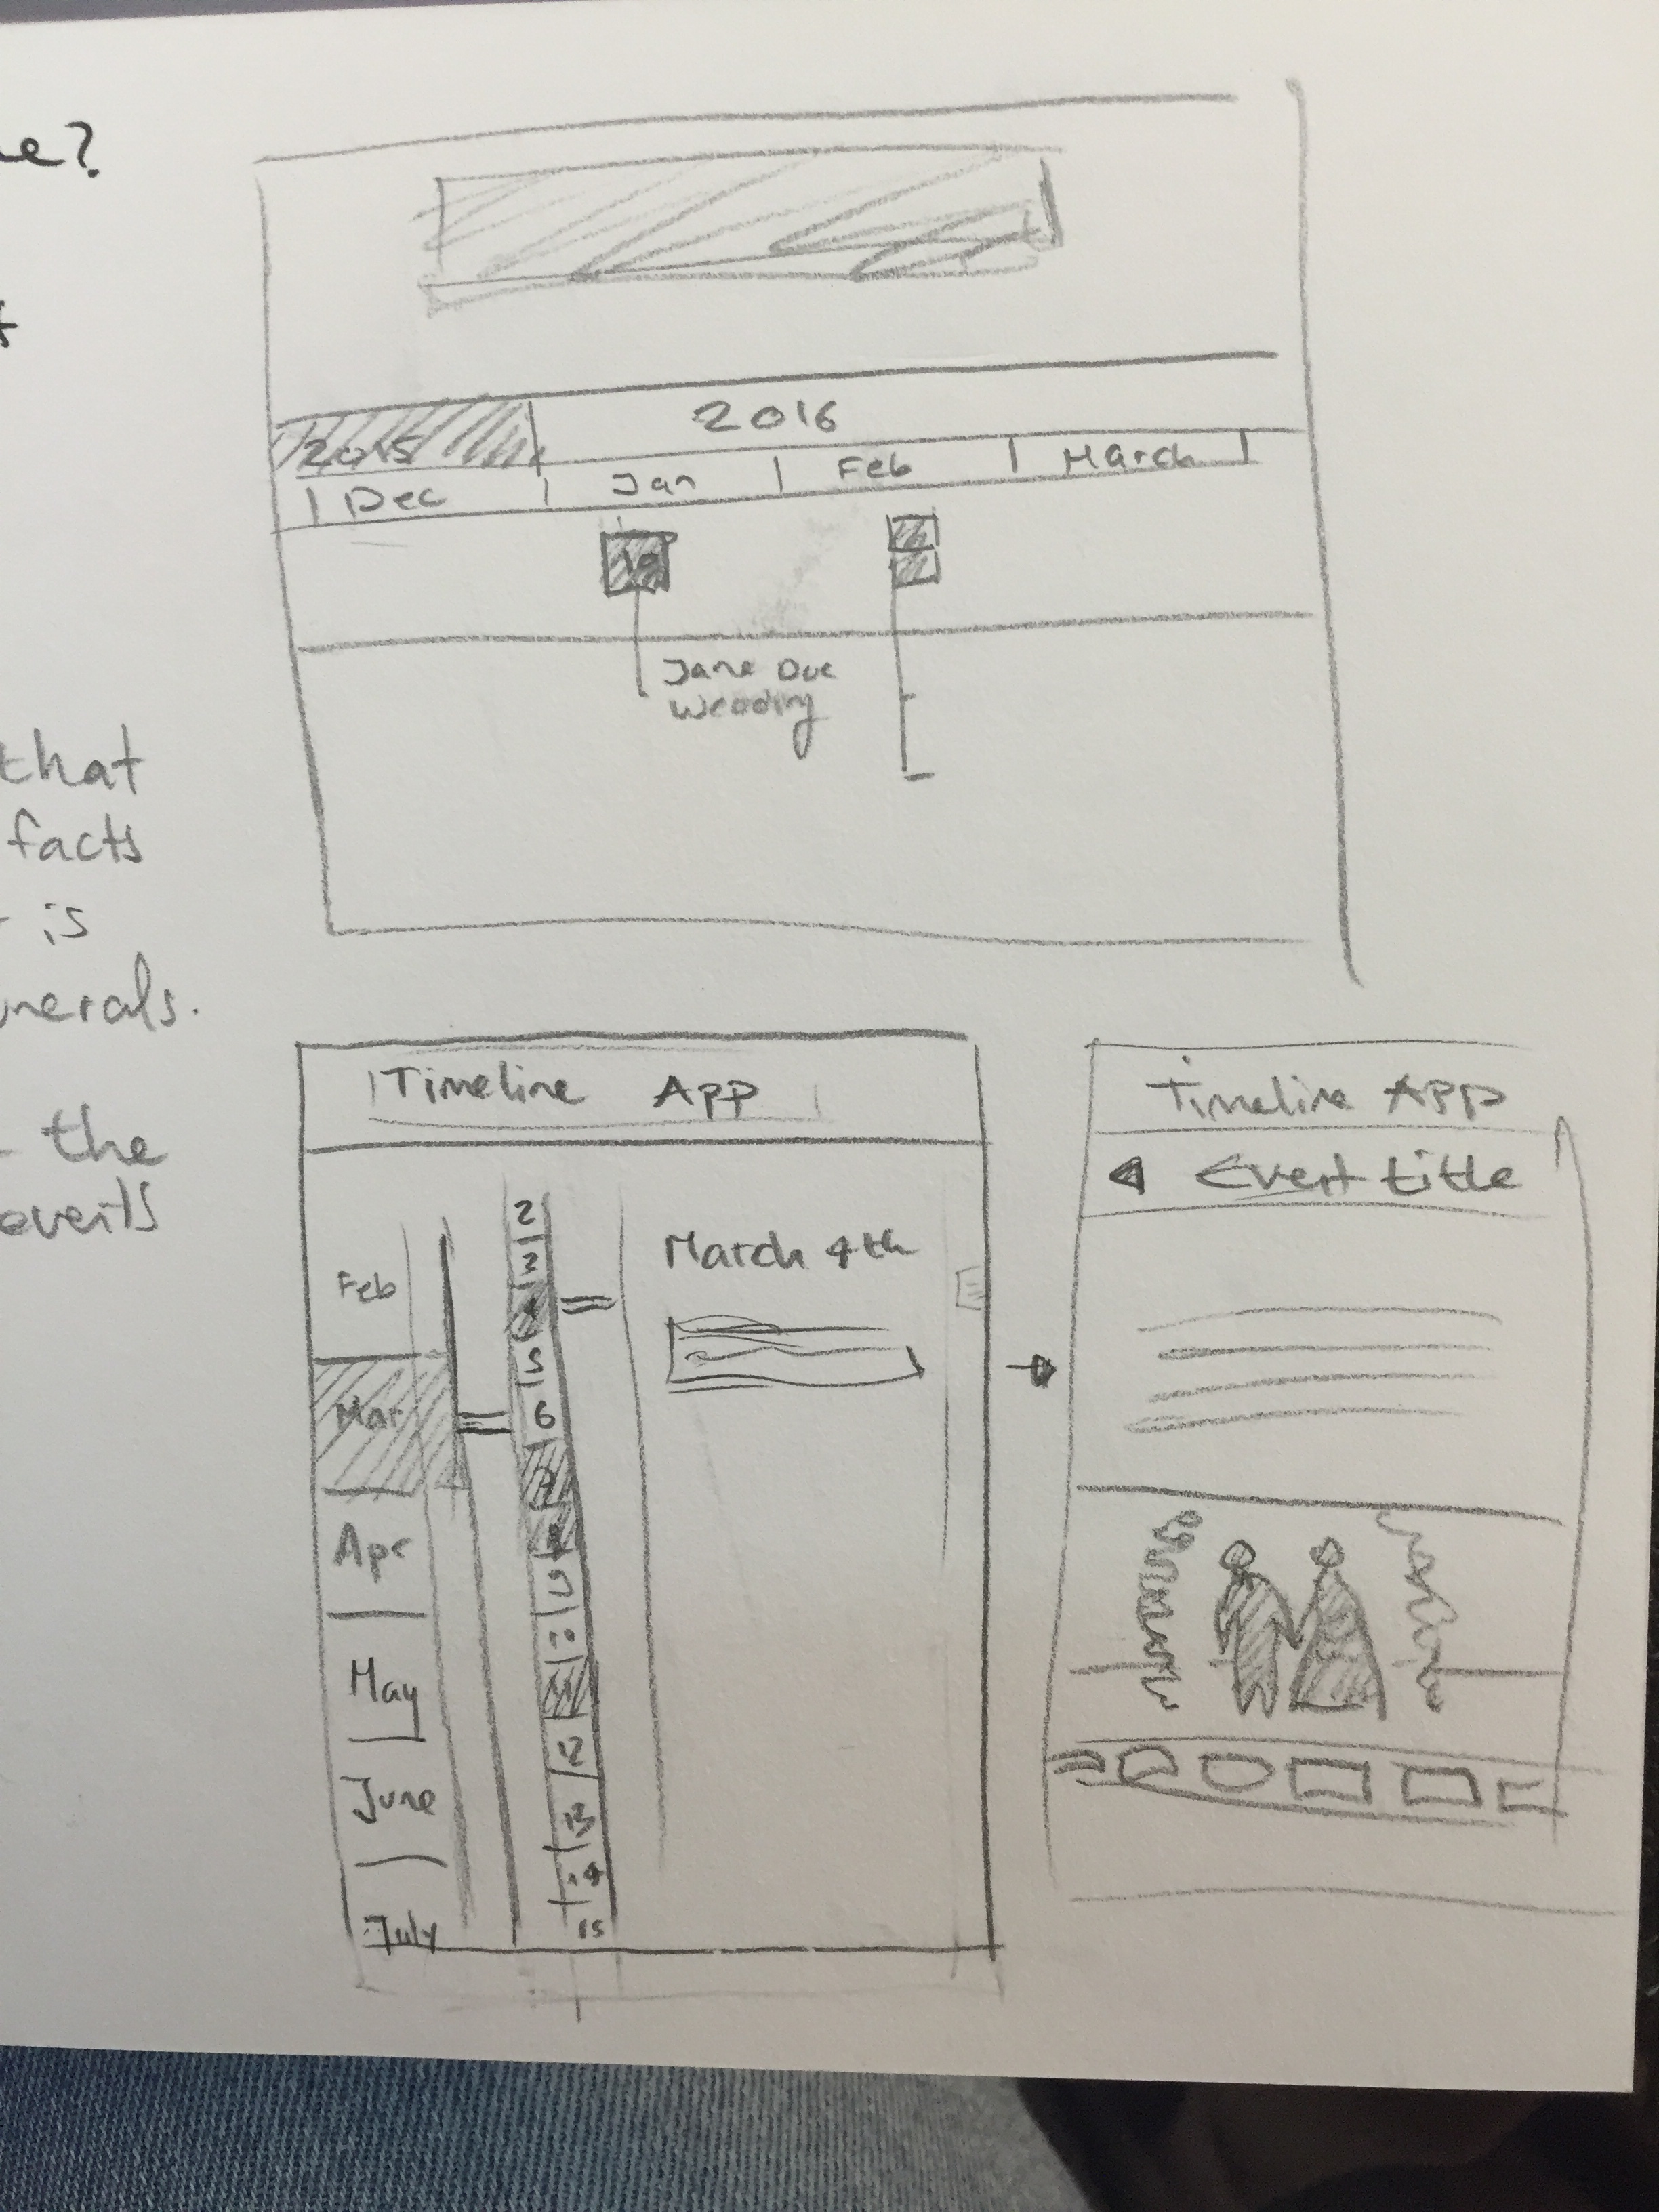 ne?
that
facts
is
nerals.
the
events
2015
2016
Dec
Jan
Feb
March
10
Jane Doe
Wedding
Timeline App
Feb
Mar
Apr
May
June
July
2
3
4
5
6
7
8
9
10
11
12
13
14
15
March 4th
Timeline App
Event title